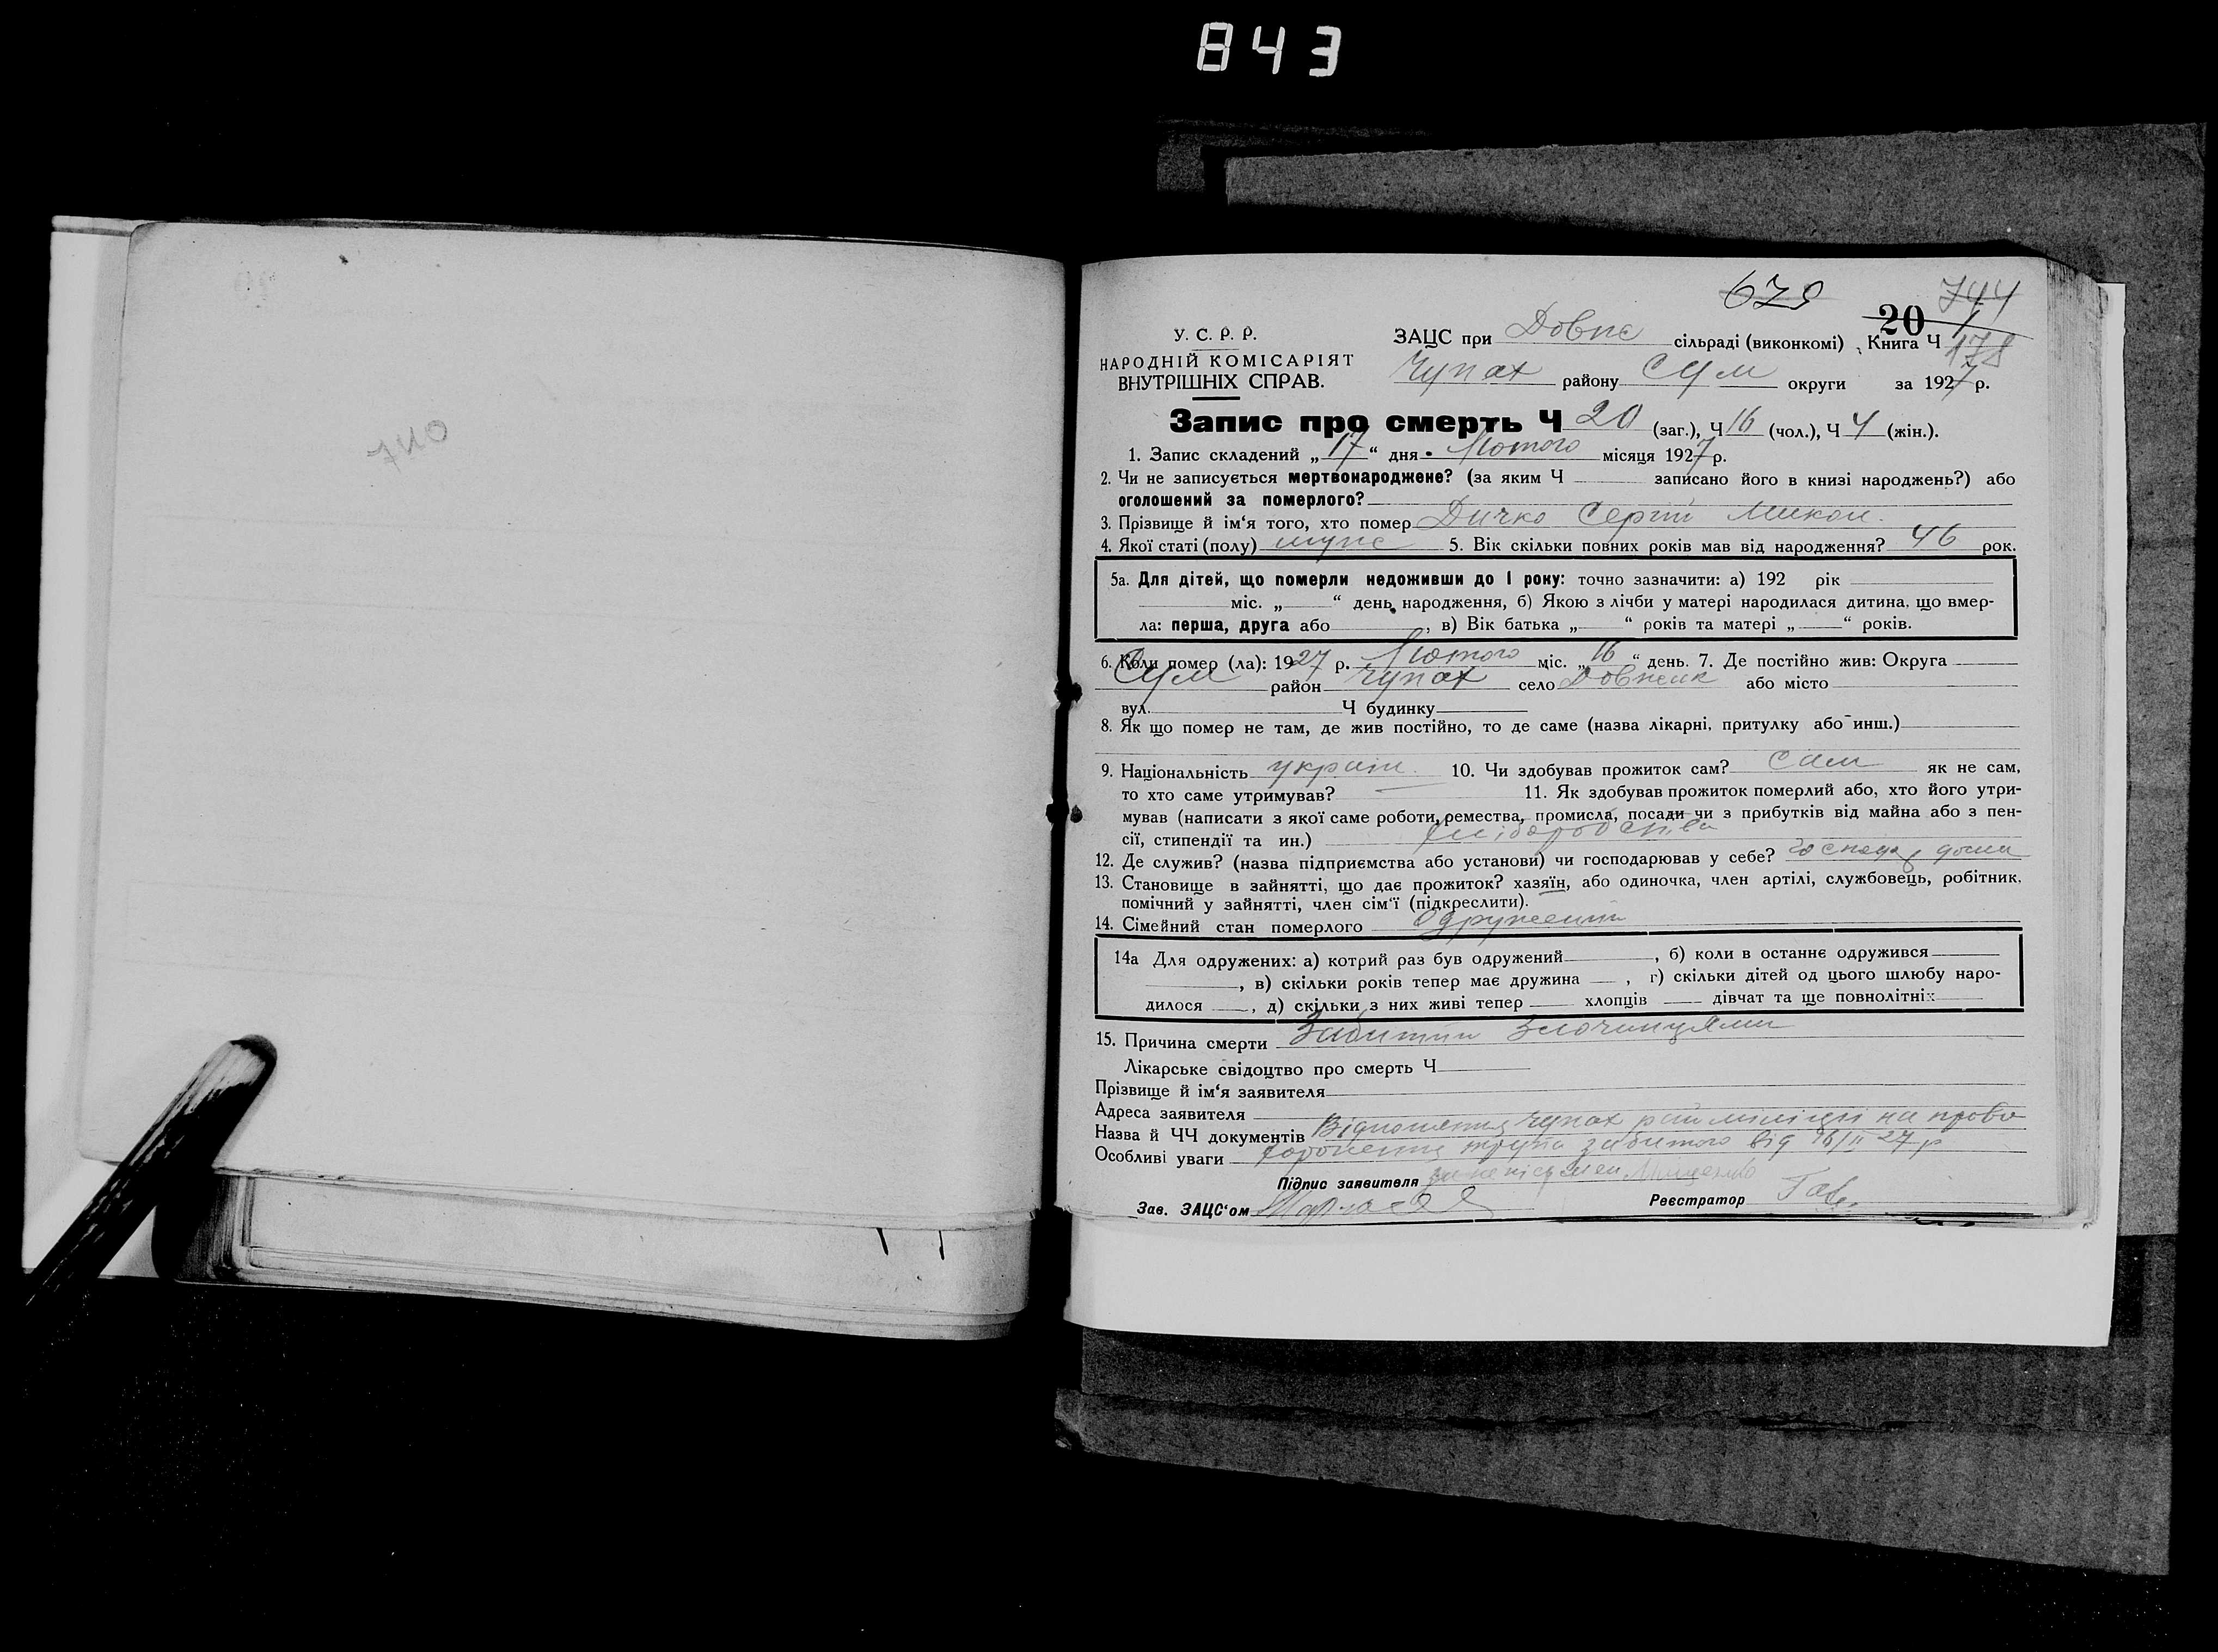 843
740
679
744
20
У. С. Р. Р.
НАРОДНІЙ КОМІСАРІЯТ
ВНУТРІШНІХ СПРАВ.
ЗАЦС при Довже сільраді (виконкомі) Книга Ч 1
178
Чупах району Сум округи за 1927 р.
Запис про смерть Ч 20 (заг.), Ч 16 (чол.), Ч 4 (жін.).
1. Запис складений „17“ дня Лютого місяця 1927 р.
2. Чи не записується мертвонароджене? (за яким Ч записано його в книзі народжень?) або
оголошений за померлого?
3. Прізвище й ім'я того, хто помер Дичко Сергій Микол.
4. Якої статі (полу) муже 5. Вік скільки повних років мав від народження? 46 рок.
5а. Для дітей, що померли недоживши до 1 року: точно зазначити: а) 192 рік
міс. „ “ день народження, б) Якою з лічби у матері народилася дитина, що вмер-
ла: перша, друга або , в) Вік батька „ “ років та матері „ “ років.
6. Коли помер (ла): 1927 р. Лютого міс. „16“ день. 7. Де постійно жив: Округа
Сум район Чупах село Довжик або місто
вул. Ч будинку
8. Як що помер не там, де жив постійно, то де саме (назва лікарні, притулку або инш.)
9. Національність україн. 10. Чи здобував прожиток сам? Сам як не сам,
то хто саме утримував? 11. Як здобував прожиток померлий або, хто його утри-
мував (написати з якої саме роботи, ремества, промисла, посади чи з прибутків від майна або з пен-
сії, стипендії та ин.) хліборобства
12. Де служив? (назва підприємства або установи) чи господарював у себе? господ дома
13. Становище в зайнятті, що дає прожиток? хазяїн, або одиночка, член артілі, службовець, робітник,
помічний у зайнятті, член сім'ї (підкреслити).
14. Сімейний стан померлого Одружений
14а Для одружених: а) котрий раз був одружений , б) коли в останнє одружився
, в) скільки років тепер має дружина , г) скільки дітей од цього шлюбу наро-
дилося , д) скільки з них живі тепер хлопців дівчат та ще повнолітніх
15. Причина смерти Забитий злочинцями
Лікарське свідоцтво про смерть Ч
Прізвище й ім'я заявителя
Адреса заявителя
Назва й ЧЧ документів Відношення Чупах райміліції на право
Особливі уваги хоронення трупа забитого від 16/II 27 р
Підпис заявителя за неписьмен
Зав. ЗАЦС'ом Реєстратор